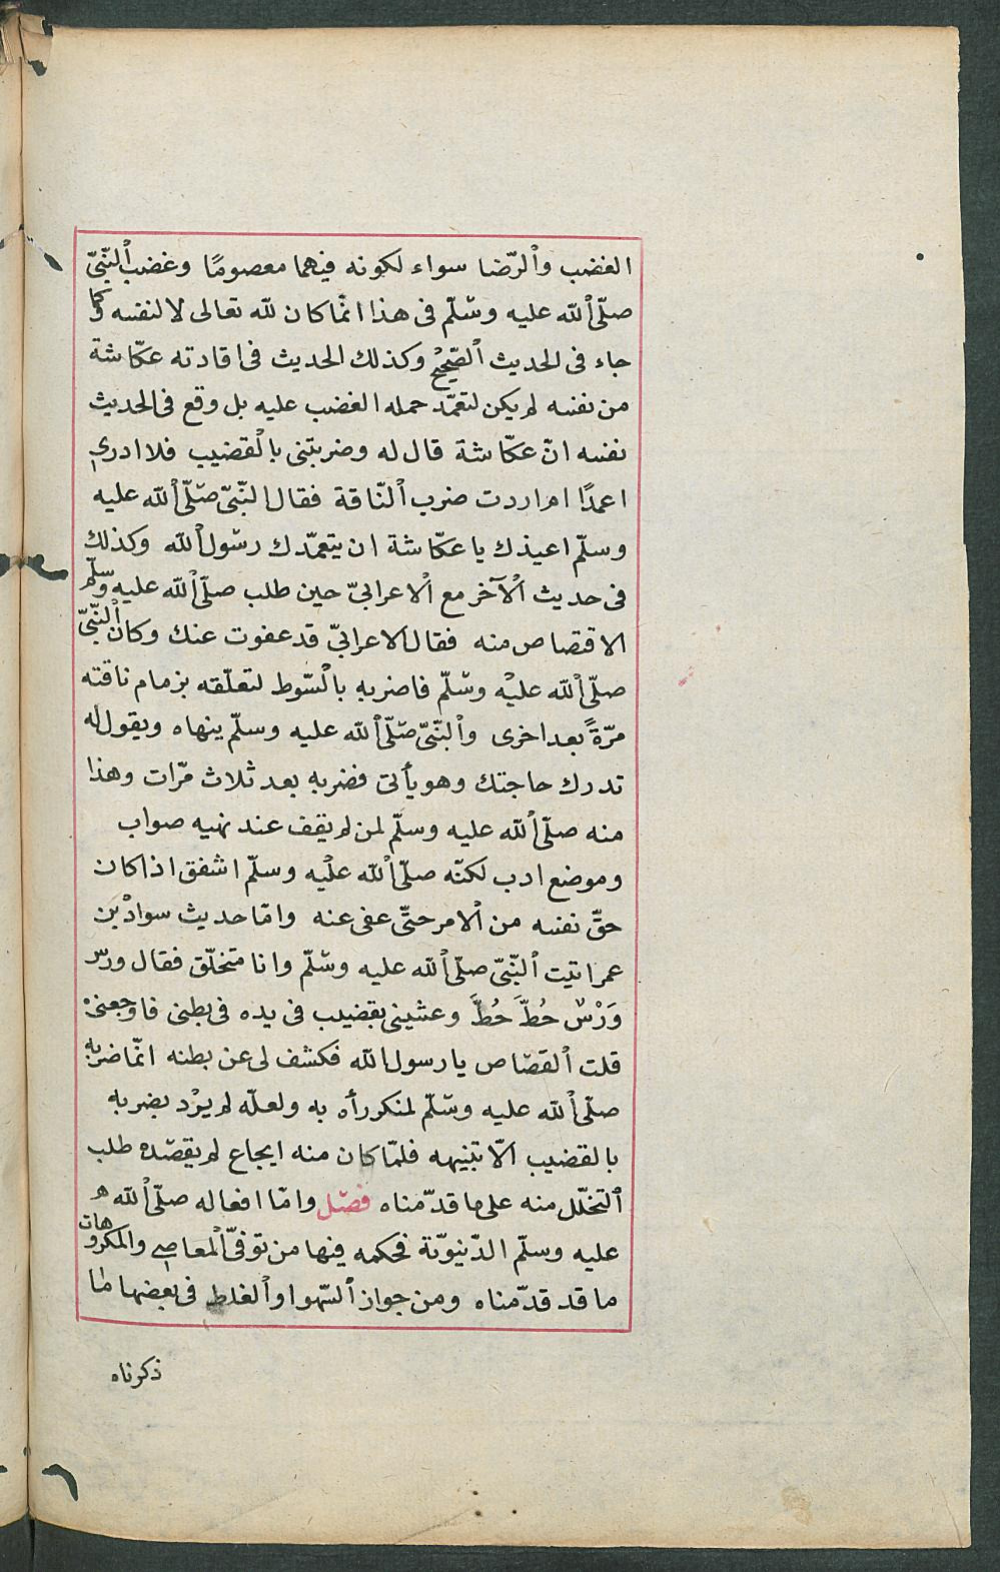 الغضب والرّضا سواء لكونه فيهما معصومًا وغضب النّبىّ
صلّى الله عليه وسّلّم فى هذا انّما كان لله تعالى لا لنفسه كما
جاء فى الحديث الصّحيح وكذلك الحديث فى اقادته عكّاشة
من نفسه لم يكن لتعمّد حمله الغضب عليه بل وقع فى الحديث
نفسه انّ عكّاشة قال له وضربتنى بالقضيب فلا ادرى
اعمدًا ام اردت ضرب النّاقة فقال النّبىّ صّلّى الله عليه
وسلّم اعيذك يا عكّاشة ان يتعمّدك رسّول الله وكذلك
فى حديث الآخر مع الاعرابىّ حين طلب صلّى الله عليه وسلّم
الاقتصاص منه فقال الاعرابىّ قد عفوت عنك وكان النّبىّ
صلّى الله عليه وسّلّم فاضربه بالسّوط لتعلّقه بزمام ناقته
مرّةً بعد اخرى والنّبىّ صّلّى الله عليه وسلّم ينهاه ويقول له
تدرك حاجتك وهو يأبى فضربه بعد ثلاث مرّات وهذا
منه صلّى الله عليه وسلّم لمن لم يقف عند نهيه صواب
وموضع ادب لكنّه صلّى الله عليه وسلّم اشفق اذا كان
حقّ نفسه من الامر حتّى عفى عنه وامّا حديث سواد بن
عمر اتيت النّبىّ صلّى الله عليه وسّلّم وانا متخلّق فقال ورّد
وَرْسٌ حُطَّ حُطَّ وعشينى بقضيب فى يده فى بطنى فاوجعنى
قلت القصّاص يا رسول الله فكشف لى عن بطنه انّما ضربه
صلّى الله عليه وسّلّم لمنكر رأه به ولعلّه لم يرد بضربه
بالقضيب الّا تنبيهه فلمّا كان منه ايجاع لم يقصّده طلب
التخلّل منه على ما قدّمناه فصّل وامّا افعاله صلّى الله
عليه وسلّم الدّنيويّة فحكمه فيها من توفّى المعاصى والمكروهات
ما قد قدّمناه ومن جواز السّهو او الغلط فى بعضها ما
ذكرناه